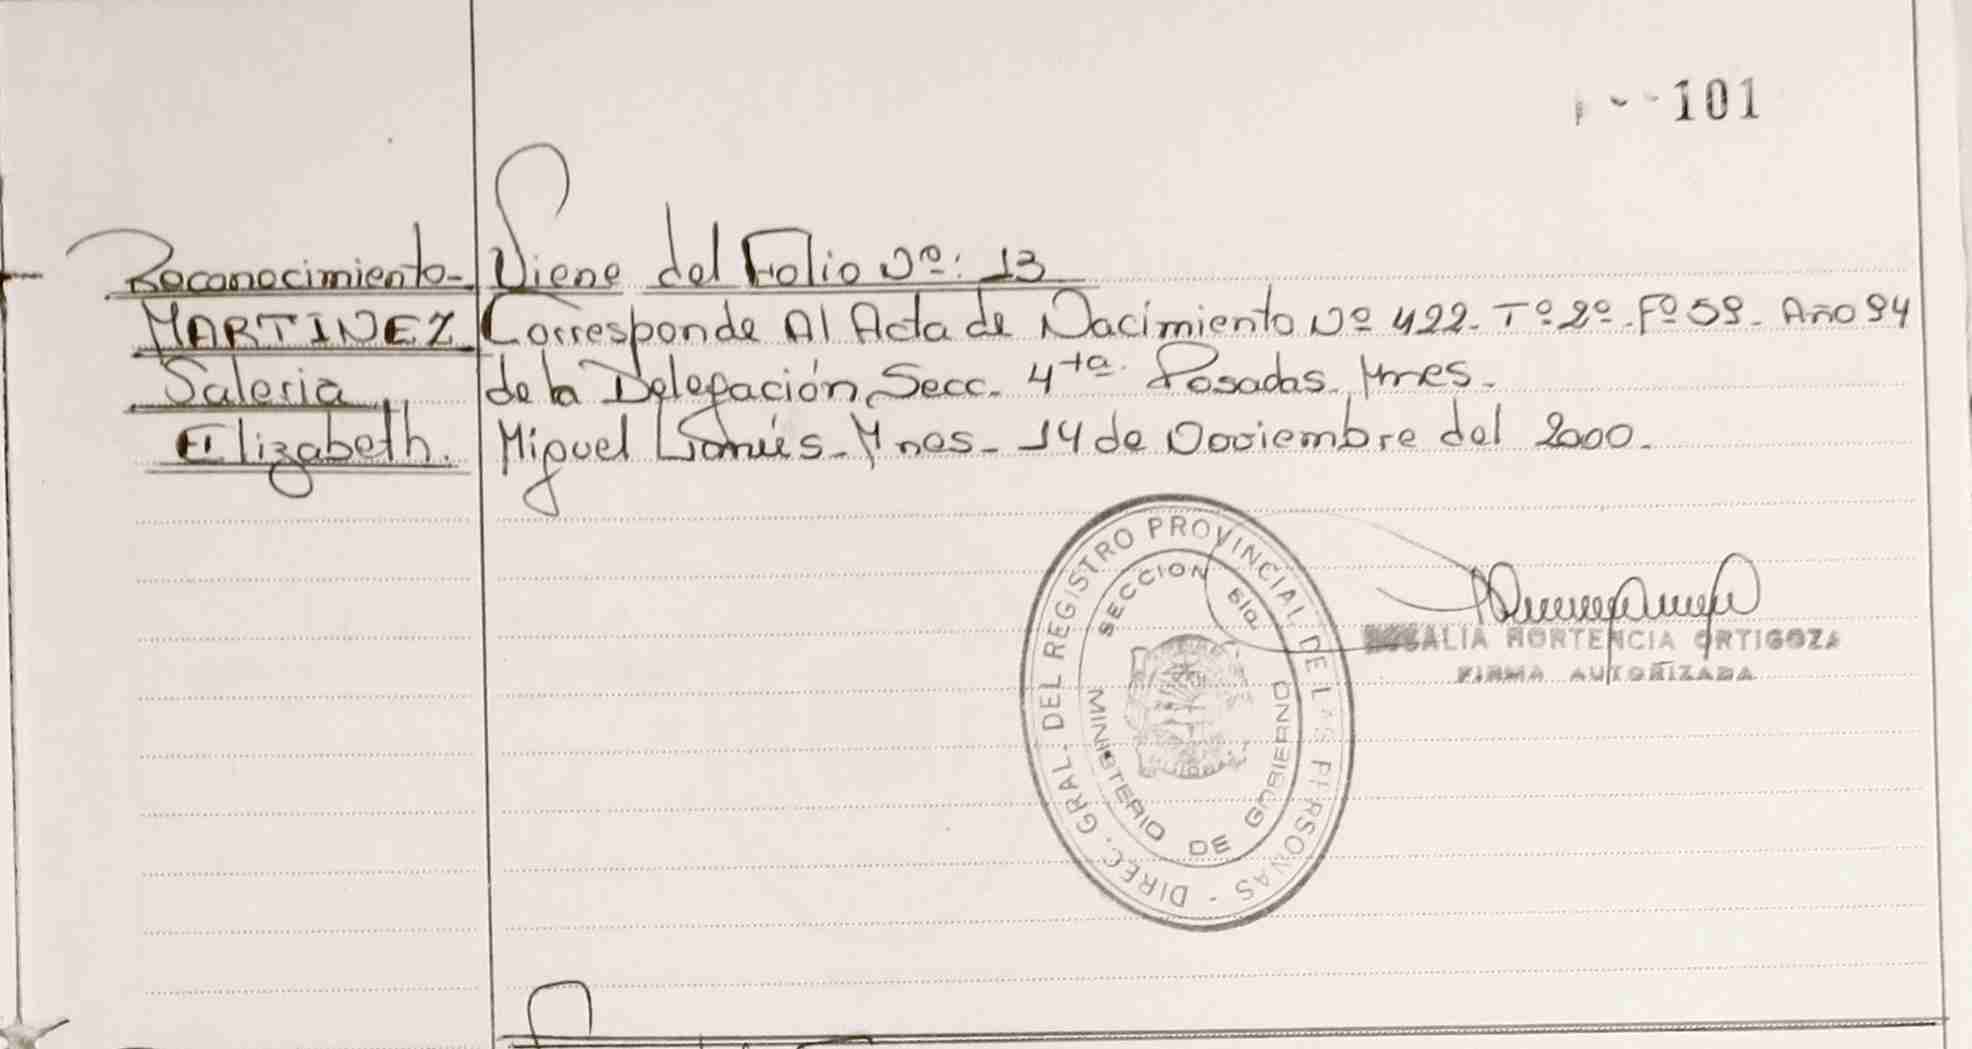 101
Reconocimiento-
MARTINEZ
Valeria
Elizabeth.
Viene del Folio Nº: 13
Corresponde Al Acta de Nacimiento Nº 422- Tº 2º- Fº 59- Año 94
de la Delegación Secc. 4ta. Posadas Mnes-
Miguel Lanús- Mnes- 14 de Noviembre del 2000.
DIREC. GRAL. DEL REGISTRO PROVINCIAL DE LAS PERSONAS -
SECCION 5ta
MINISTERIO DE GOBIERNO
ROSALIA HORTENCIA ORTIGOZA
FIRMA AUTORIZADA